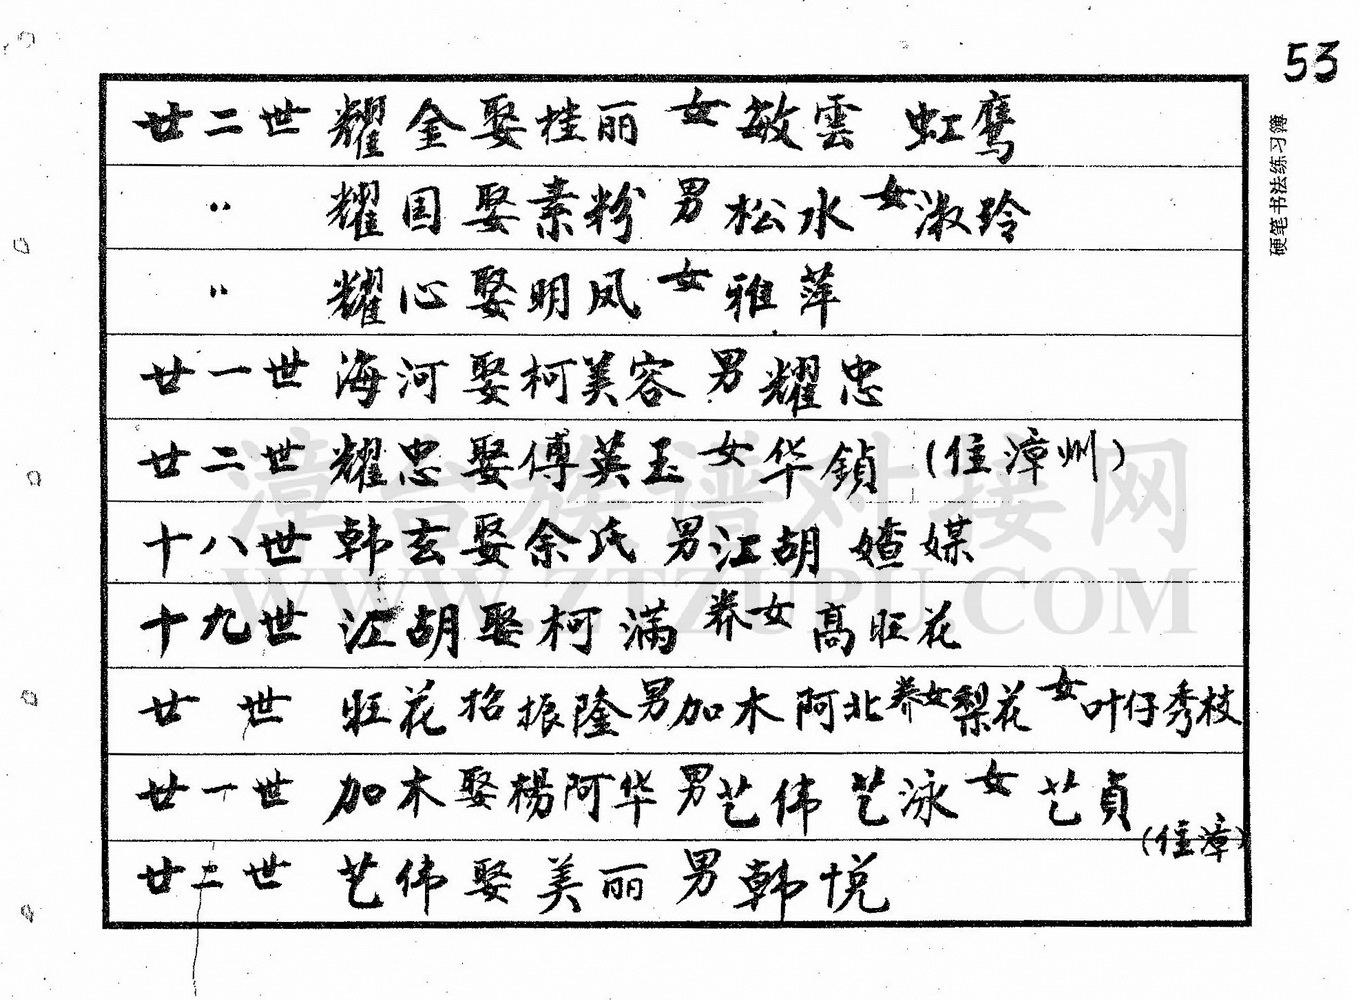 53
硬笔书法练习簿
廿二世 耀金娶桂丽 女敏雲 虹鹰
〃 耀国娶素粉 男松水 女淑玲
〃 耀心娶明凤 女雅萍
廿一世 海河娶柯美容 男耀忠
廿二世 耀忠娶傅英玉 女华鎮 (住漳州)
十八世 韩玄娶余氏 男江胡 媎媒
十九世 江胡娶柯满 养女高旺花
廿世 旺花招振隆 男加木 阿北 养女梨花 女叶仔秀枝
廿一世 加木娶楊阿华 男艺伟 艺泳 女艺貞
(住漳)
廿二世 艺伟娶美丽 男韩悦
漳台族谱对接网
WWW.ZTZUPU.COM